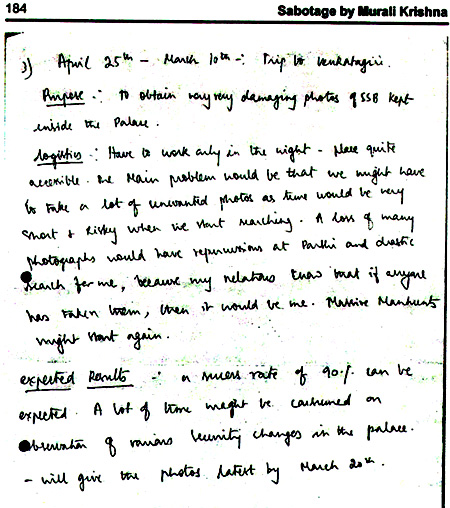 184
Sabotage by Murali Krishna
3) April 25th - March 10th -: Trip to Venkatagiri.
Purpose -: To obtain very very damaging photos of SSB kept
inside the Palace.
Logistics -: Have to work only in the night - place quite
accessible. The Main problem would be that we might have
to take a lot of unwanted photos as time would be very
short & Risky when we start searching. A loss of many
photographs would have repurcussions at Parthi and drastic
search for me, because my relations know that if anyone
has taken them, then it would be me. Massive Manhunts
might start again.
expected Results -: a success rate of 90% can be
expected. A lot of time might be consumed on
observation of various security changes in the palace.
- will give the photos latest by March 20th.